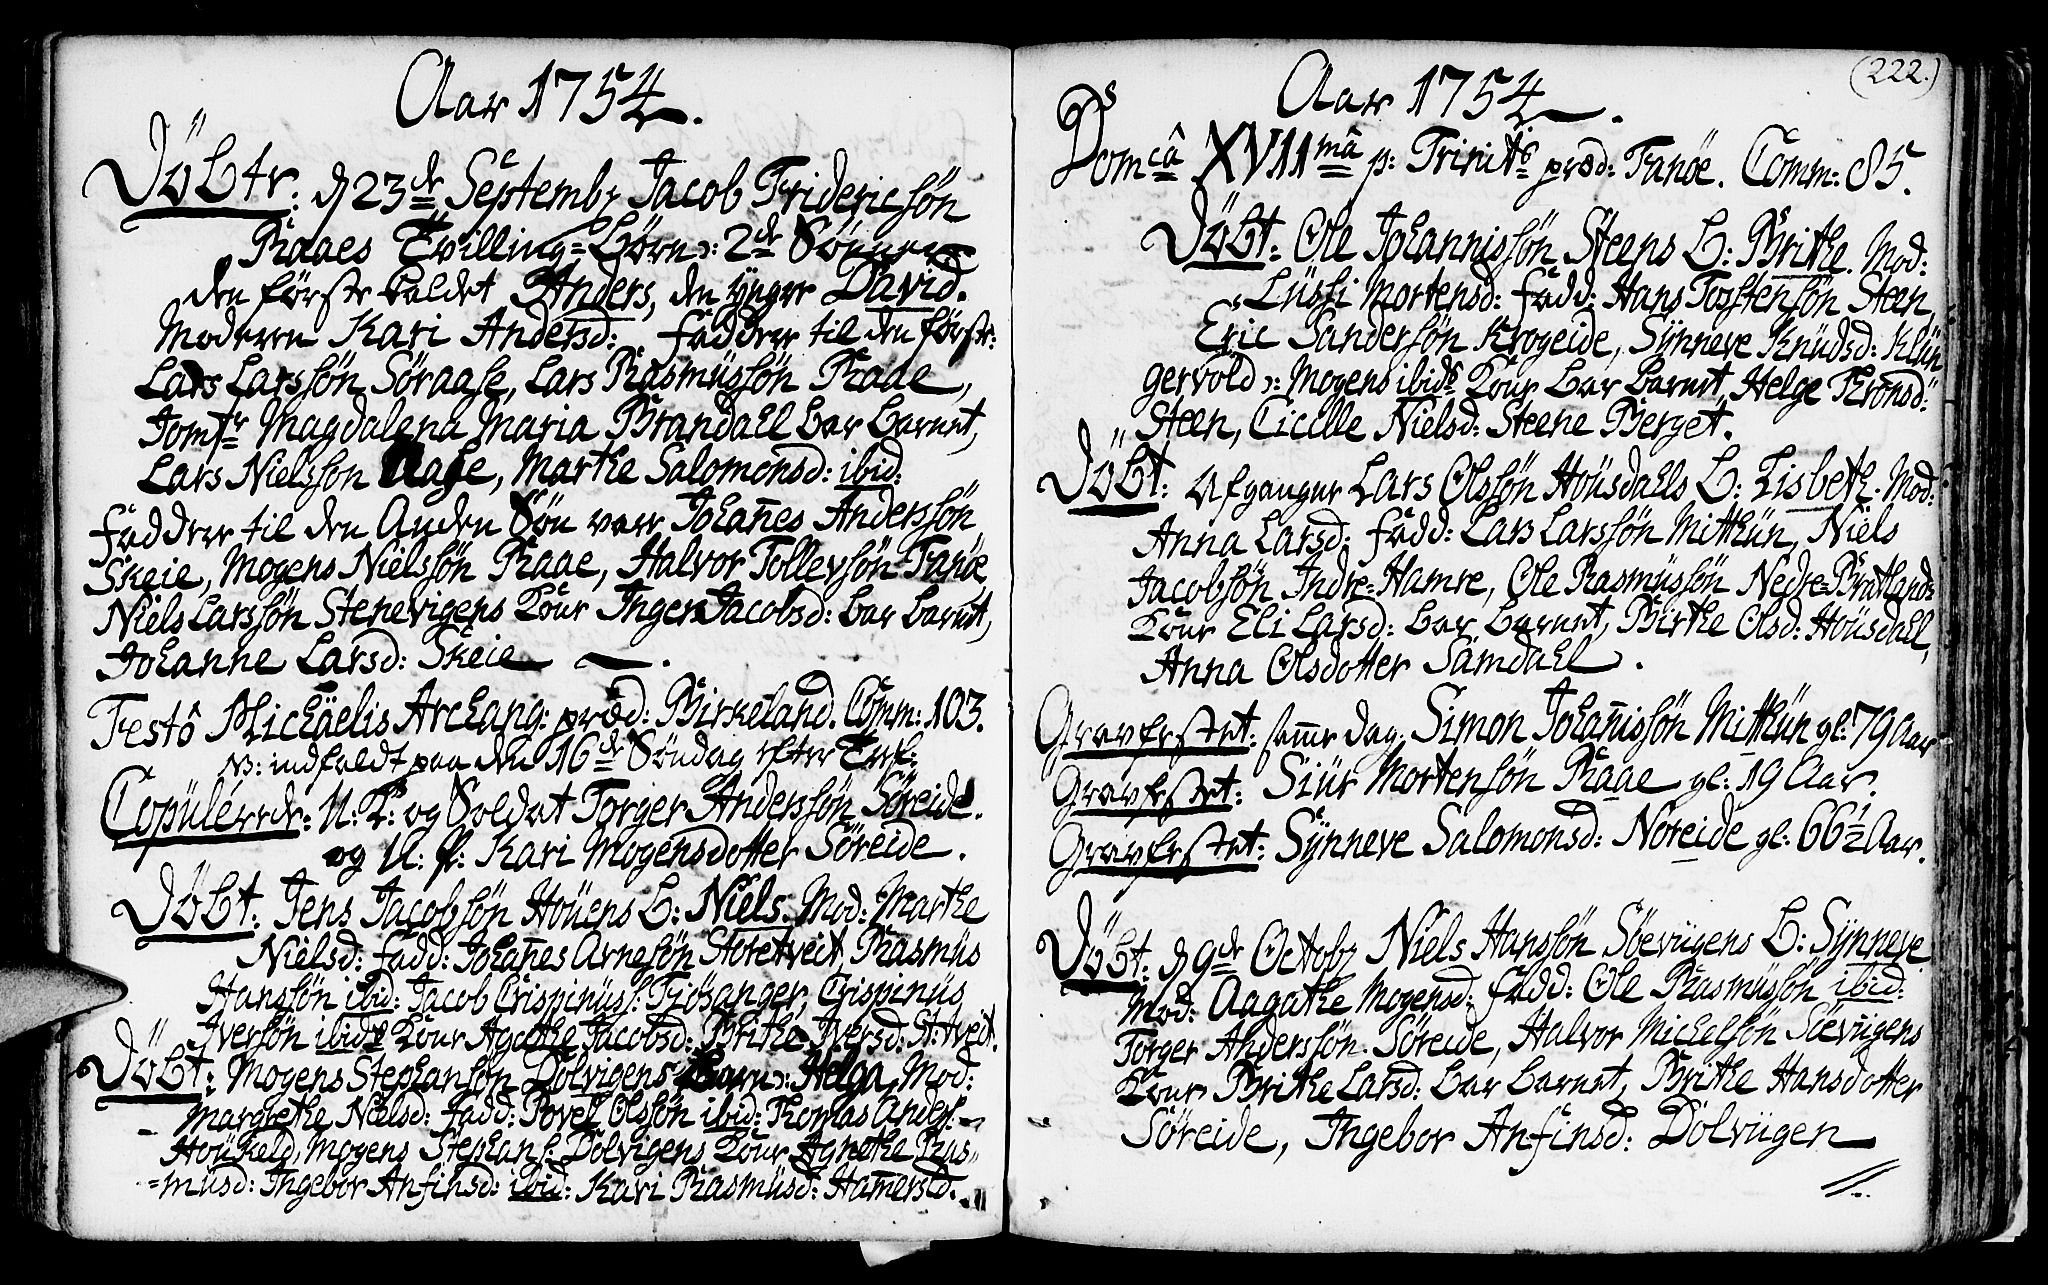 Aar 1754.
Döbte: d 23de Septembr Jacob Fridericsön
Raaes Tvilling-Börn: 2de Sönner
den förste kaldet Anders, den ÿngre David.
Moderen Kari Andersd: fadder til den förste:
Lars Larssön Söraase, Lars Rasmüssön Raae,
Jomfr Magdalena Maria Brandahl bar barnet,
Lars Nielssön Aase, Marthe Salomonsd: ibid:
fadder til den Anden Sön var Johañes Anderssön
Skeie, Mogens Nielssön Raae, Halvor Tollevsön Fanöe
Niels Larssön Stenevigens Kone Inger Jacobsd: bar barnet,
Johanne Larsd: Skeie
Festô Michäelis Archang: præd: Birkeland. Comm: 103.
NB: indfaldt paa den 16de Söndag efter Tref:
Copüleerede: U: K: og Soldat Torger Anderssön Söreide.
og U: P: Kari Mogensdotter Söreide.
Döbt: Jens Jacobsön Höüens B: Niels. Mod: Marthe
Nielsd: fadd: Johañes Arnesön Storetveit, Rasmüs
Hanssön ibid: Jacob Crispinüs: Tjösanger, Crispinüs
Iversön ibids Kone Agathe Jacobsd: Brithe Iversd: St:tveit.
Döbt: Mogens Stephansön Dölvigens Barn: Helga, Mod:
Margrethe Nielsd: fadd: Povel Olssön ibid: Thomas Anders:
Houkeld, Mogens Stephans: Dölvigens Kone Agnethe Ras-
-müsd: Ingebor Anfinsd: ibid: Kari Rasmüsd: Hamersld.
(222.)
Aar 1754.
Ds
Domcâ XVIImâ p: Trinits præd: Fanöe. Comm: 85.
Döbt: Ole Johannissön Steens B: Brithe. Mod:
Lüssi Mortensd: fadd: Hans Torstensön Steen,
Eric Sandersön Krogeide, Sÿnneve Knüdsd: Klün
gervold: Mogens ibids Kone bar barnet, Helge Thronsd:
Steen, Cicille Nielsd: Steene Berget.
Döbt: Afgangne Lars Olssön Höüsdahls B: Lisbeth. Mod:
Anna Larsd: fadd: Lars Larssön Mitthün, Niels
Jacobsön Indre-Hamre, Ole Rasmüssön Nedre-Bratlands
Kone Eli Larsd: bar barnet, Birthe Olsd: Höüsdahl,
Anna Olsdotter Samdahl.
Gravfestet: same dag: Simon Johañissön Mitthün gl: 79 Aar
Gravfestet: Siür Mortensön Raae gl: 19 Aar.
Gravfestet: Sÿnneve Salomonsd: Noreide gl: 66½ Aar.
Döbt: d 9de Octobr Niels Hanssön Söevügens B: Sÿnneve
Mod: Aagathe Mogensd: fadd: Ole Rasmüssön ibid:
Torger Anderssön. Söreide, Halvor Michelsön Söevügens
Kone Brithe Larsd: bar barnet, Brithe Hansdotter
Söreide, Ingebor Anfinsd: Dölvügen